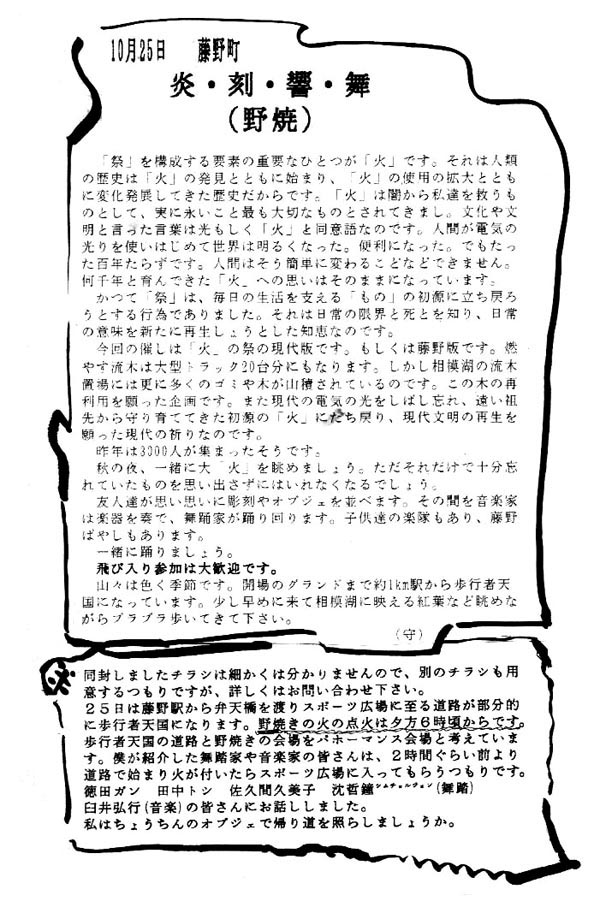 10月25日　藤野町
炎・刻・響・舞
（野焼）
「祭」を構成する要素の重要なひとつが「火」です。それは人類
の歴史は「火」の発見とともに始まり、「火」の使用の拡大ととも
に変化発展してきた歴史だからです。「火」は闇から私達を救うも
のとして、実に永いこと最も大切なものとされてきまし。文化や文
明と言った言葉は光もしく「火」と同意語なのです。人間が電気の
光りを使いはじめて世界は明るくなった。便利になった。でもたっ
た百年たらずです。人間はそう簡単に変わることなどできません。
何千年と育んできた「火」への思いはそのままになっています。
かつて「祭」は、毎日の生活を支える「もの」の初源に立ち戻ろ
うとする行為でありました。それは日常の限界と死とを知り、日常
の意味を新たに再生しょうとした知恵なのです。
今回の催しは「火」の祭の現代版です。もしくは藤野版です。燃
やす流木は大型トラック20台分にもなります。しかし相模湖の流木
置場には更に多くのゴミや木が山積されているのです。この木の再
利用を願った企画です。また現代の電気の光をしばし忘れ、遠い祖
先から守り育ててきた初源の「火」にたち戻り、現代文明の再生を
願った現代の祈りなのです。
昨年は3000人が集まったそうです。
秋の夜、一緒に大「火」を眺めましょう。ただそれだけで十分忘
れていたものを思い出さずにはいれなくなるでしょう。
友人達が思い思いに彫刻やオブジェを並べます。その間を音楽家
は楽器を奏で、舞踊家が踊り回ります。子供達の楽隊もあり、藤野
ばやしもあります。
一緒に踊りましょう。
飛び入り参加は大歓迎です。
山々は色く季節です。開場のグランドまで約1km駅から歩行者天
国になっています。少し早めに来て相模湖に映える紅葉など眺めな
がらブラブラ歩いてきて下さい。
（守）
同封しましたチラシは細かくは分かりませんので、別のチラシも用
意するつもりですが、詳しくはお問い合わせ下さい。
２５日は藤野駅から弁天橋を渡りスポーツ広場に至る道路が部分的
に歩行者天国になります。野焼きの火の点火は夕方６時頃からです。
歩行者天国の道路と野焼きの会場をパホーマンス会場と考えていま
す。僕が紹介した舞踏家や音楽家の皆さんは、２時間ぐらい前より
道路で始まり火が付いたらスポーツ広場に入ってもらうつもりです。
徳田ガン　田中トシ　佐久間久美子　沈哲鐘シムチョルジョン(舞踏)
臼井弘行(音楽)の皆さんにお話ししました。
私はちょうちんのオブジェで帰り道を照らしましょうか。